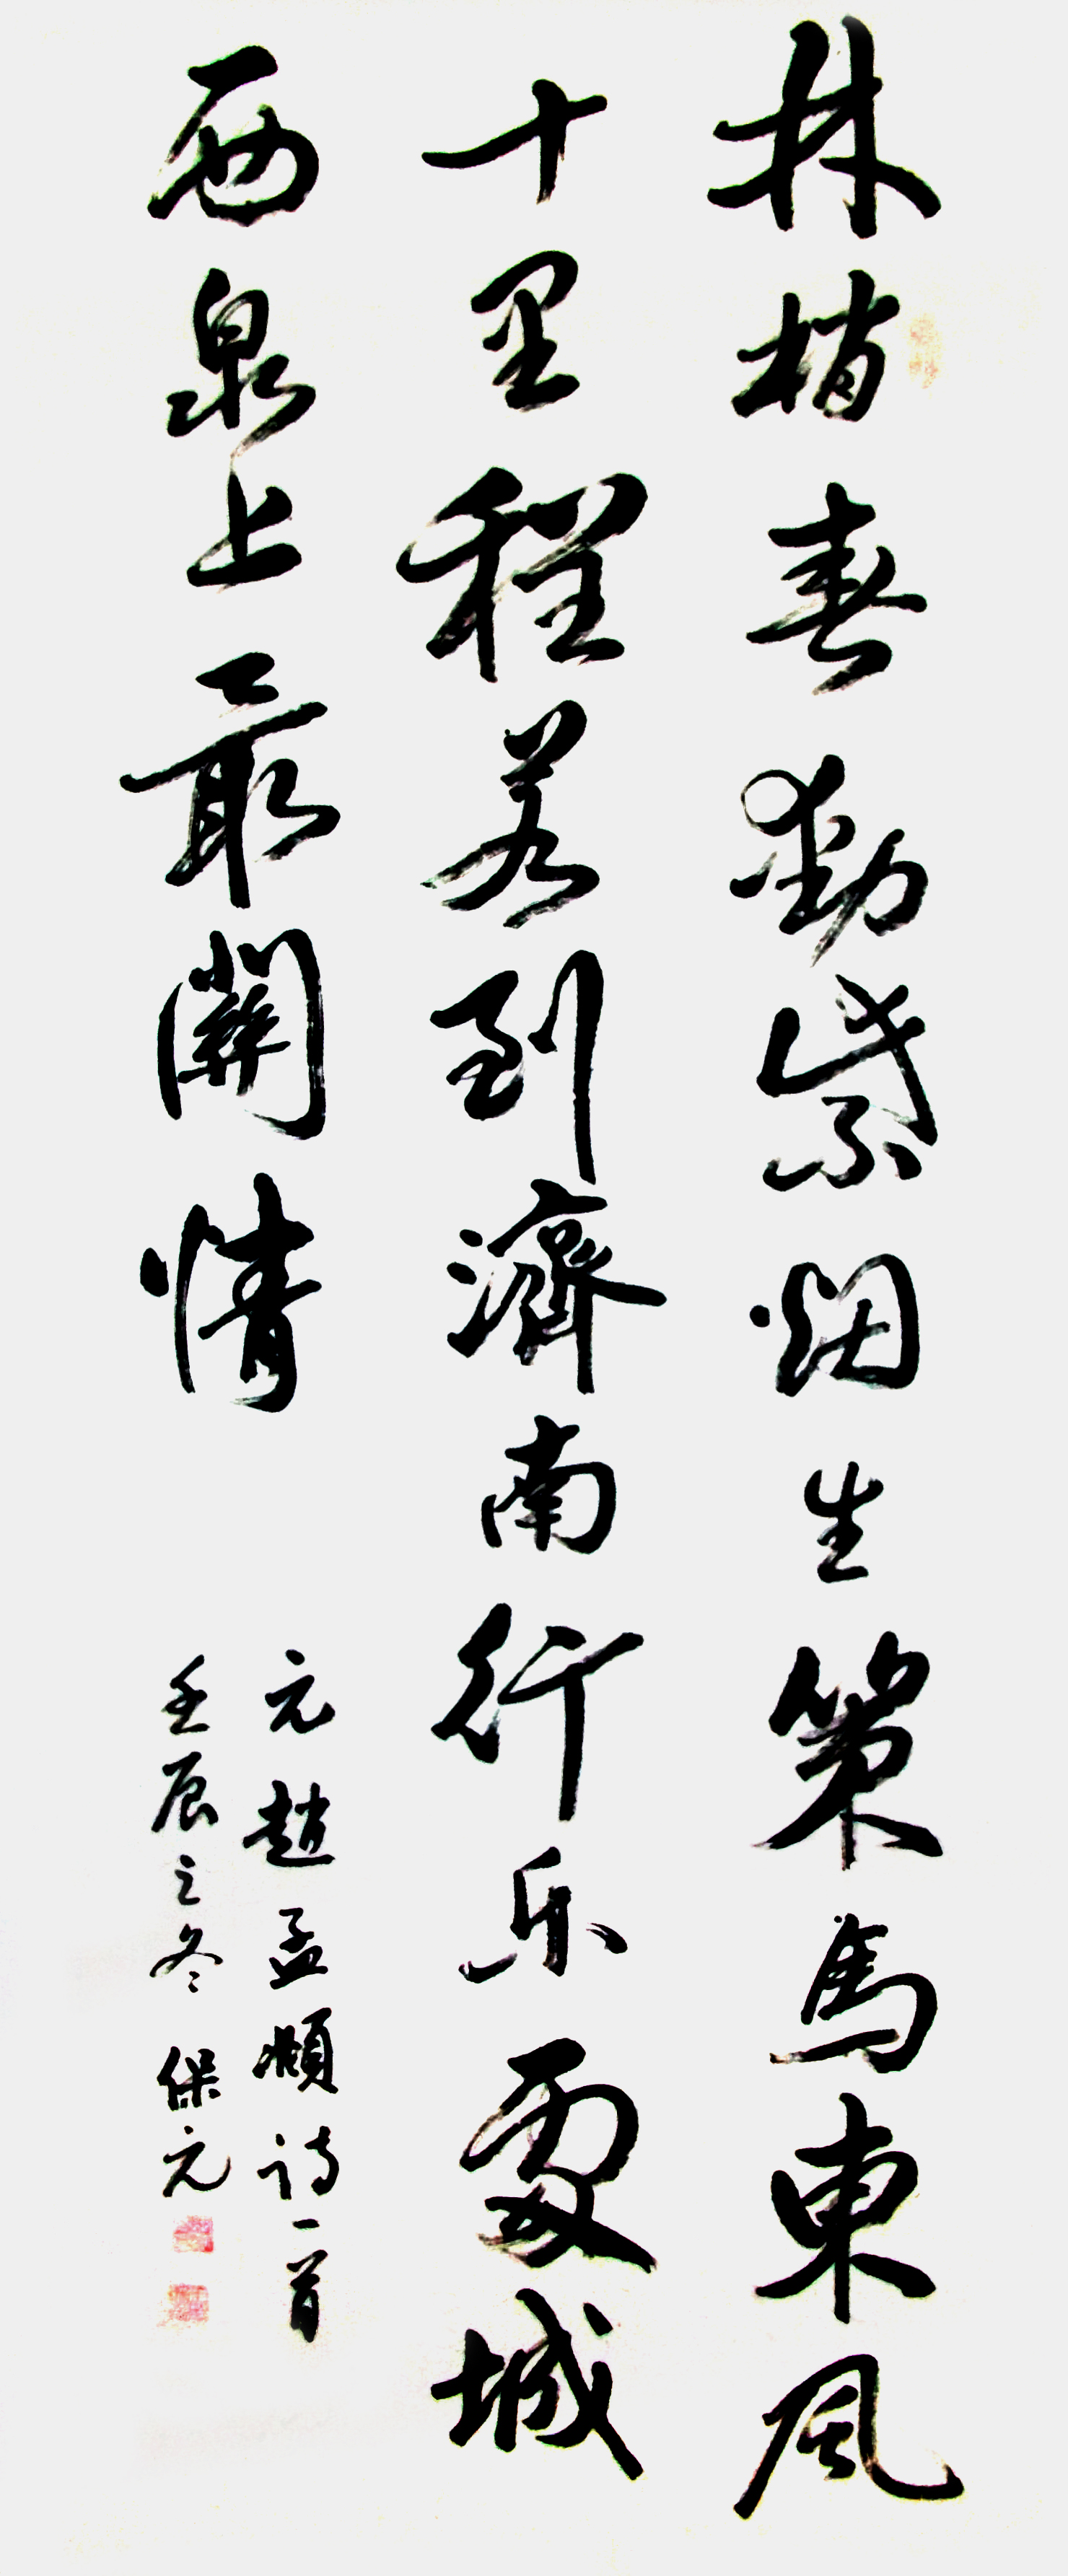 林梢春動紫烟生策馬東風
十里程若到濟南行乐處城
西泉上最關情
元趙孟頫诗一首
壬辰之冬 保元